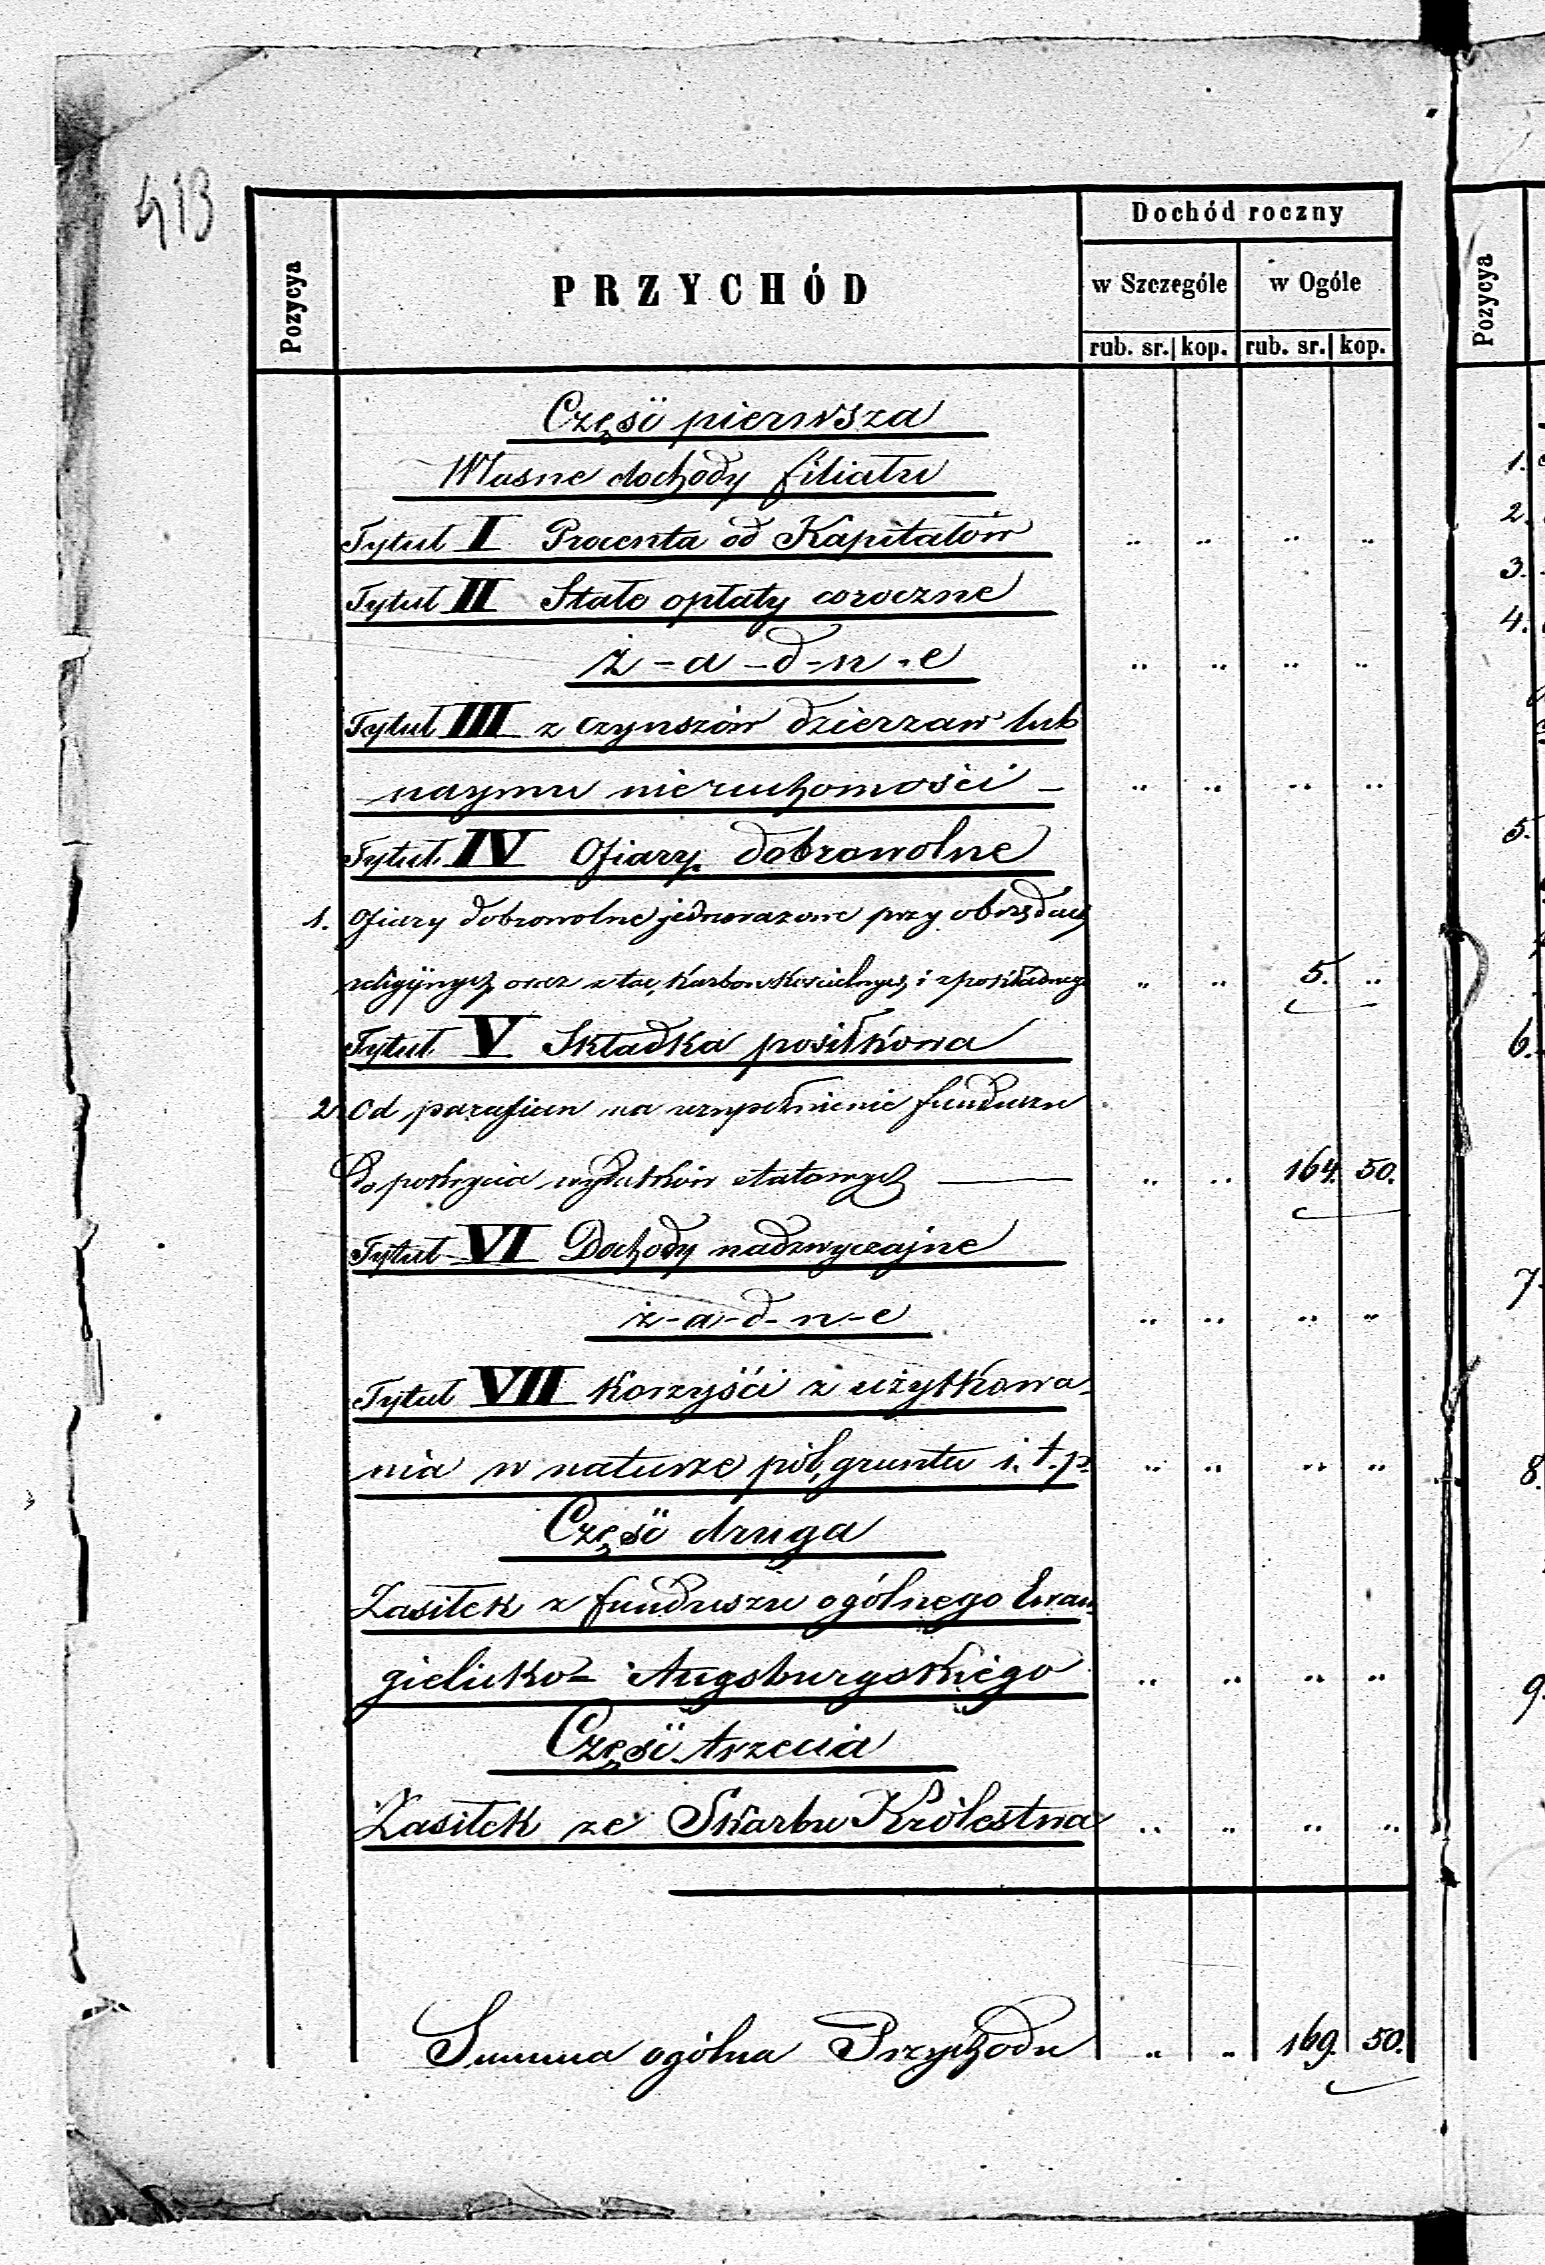 413
Dochód roczny
Pozycya
PRZYCHÓD
w Szczególe
w Ogóle
Pozycya
rub. sr. kop. rub. sr. kop.
Część pierwsza
Własne dochody filiału
Tytuł I Procenta od Kapitałów " " " "
Tytuł II Stałe opłaty coroczne
ż-a-d-n-e " " " "
Tytuł III z czynszów dzierzaw lub
naymu nieruchomości - " " " "
Tytuł IV Ofiary dobrowolne
1. Ofiary dobrowolne jednorazowe przy obrzędach
religijnych oraz z tac, karbon kościelnych i " " 5. "
Tytuł V Składka posiłkowa
2. Od parafian na uzupełnienie funduszu
do pokrycia wydatków etatowych — " " 164. 50.
Tytuł VI Dochody nadzwyczajne
ż-a-d-n-e " " " "
Tytuł VII Korzyści z użytkowa-
nia w naturze pól, gruntu i. t. p. " " " "
Część druga
Zasiłek z funduszu ogólnego Ewan-
gielicko- Augsburgskiego " " " "
Część trzecia
Zasiłek ze Skarbu Królestwa " " " "
Summa ogólna Przychodu " " 169. 50.
1.
2.
3.
4.
5.
6.
7.
8.
9.